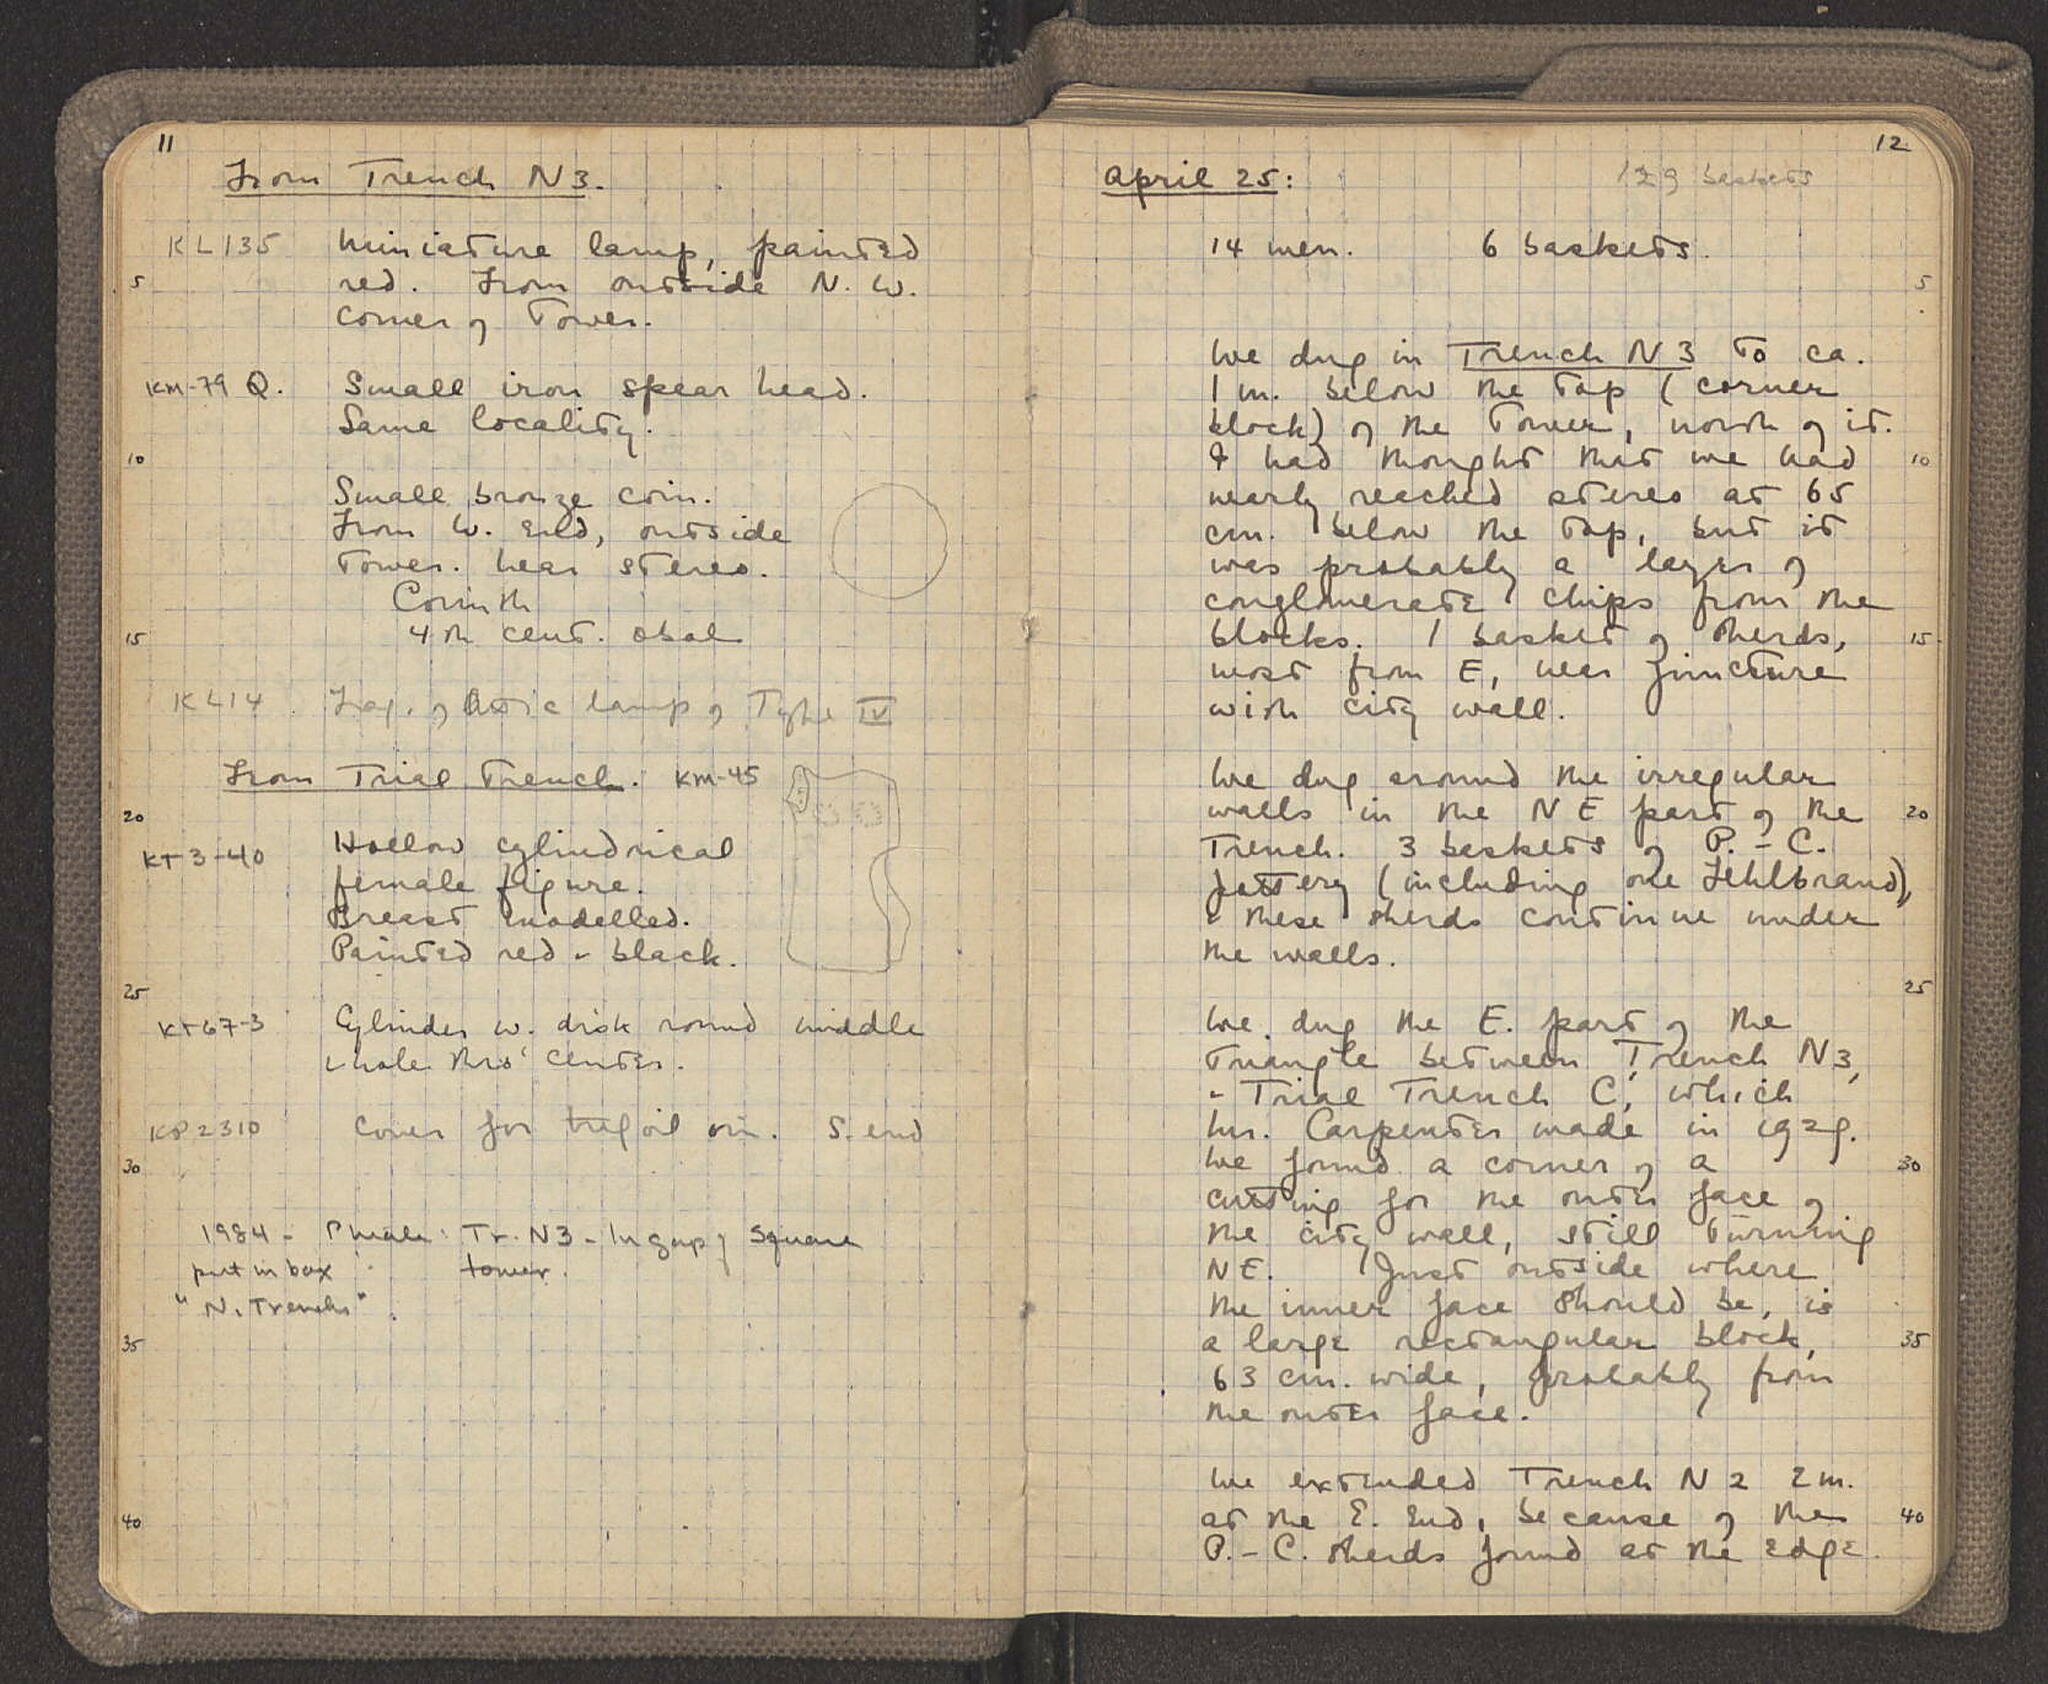 11
From Trench N3.
KL135 Miniature lamp, painted
5 red. From outside N. W.
corner of Tower.
KM-79 Q. Small iron spear head.
Same locality.
10
Small bronze coin.
From W. End, outside
Tower. Near stereo.
Corinth
15 4th cent. obol
KL14 Frag. of Attic lamp of Type IV
From Trial Trench. KM-45
20
KT3-40 Hollow cylindrical
female figure.
Breast modelled.
Painted red & black.
25
KT67-3 Cylinder w. disk round middle
& hole thro' center.
KP2310 Cover for trefoil oin. S. end
30
1984 - Phiale: Tr. N3 - In gap of Square
put in box tower.
"N. Trenches"
35
40
12
April 25: 129 baskets
14 men. 6 baskets.
5
We dug in Trench N3 to ca.
1 m. below the top (corner
block) of the Tower, north of it.
I had thought that we had 10
nearly reached stereo at 65
cm. below the top, but it
was probably a layer of
conglomerate chips from the
blocks. 1 basket of sherds, 15
most from E, near juncture
with city wall.
We dug around the irregular
walls in the NE part of the 20
Trench. 3 baskets of P.-C.
pottery (including one Fehlbrand),
& these sherds continue under
the walls.
25
We dug the E. part of the
triangle between Trench N3,
& Trial Trench C, which
Mr. Carpenter made in 1929.
We found a corner of a 30
cutting for the outer face of
the city wall, still turning
NE. Just outside where
the inner face should be, is
a large rectangular block, 35
63 cm. wide, probably from
the outer face.
We extended Trench N2 2 m.
at the E. End, because of the 40
P.-C. sherds found at the edge.